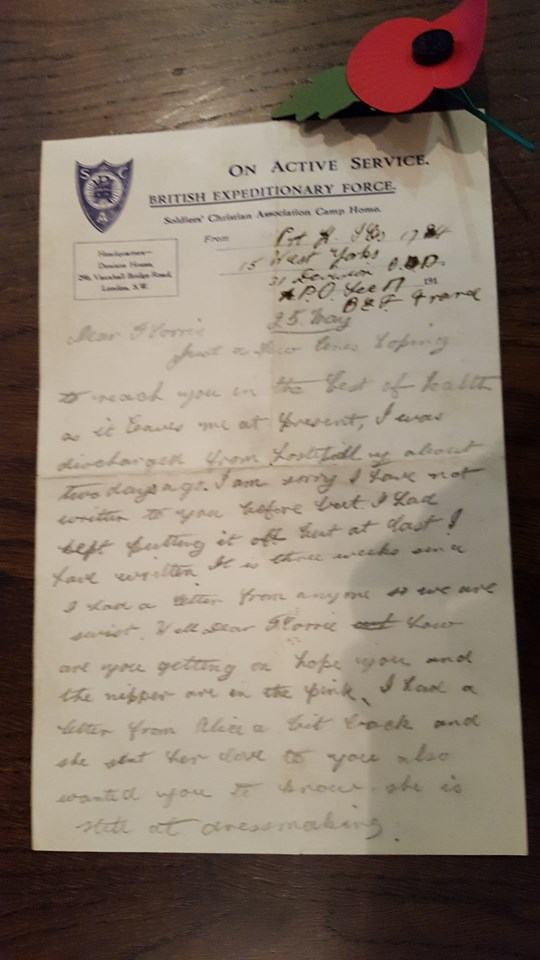 S C A
ON ACTIVE SERVICE.
BRITISH EXPEDITIONARY FORCE.
Soldiers' Christian Association Camp Home.
Headquarters—
Denison House,
296, Vauxhall Bridge Road,
London, S.W.
From
15 West Yorks
31 Division
191
A.P.O. Sec 17
B.E.F. France
25 May
Dear Florrie
Just a few lines hoping
to reach you in the best of health
as it leaves me at present, I was
discharged from up about
two days ago. I am sorry I have not
written to you before but I had
kept putting it off but at last I
have written It is three weeks since
I had a letter from anyone so we are
. Well Dear Florrie how
are you getting on hope you and
the nipper are in the pink, I had a
letter from Alice a bit back and
she sent her love to you also
wanted you to know she is
still at dressmaking.